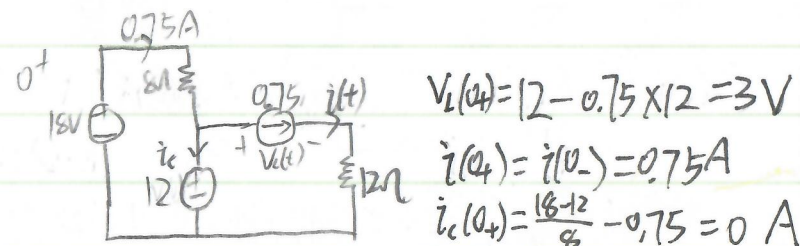 0.75A
0+
8Ω
18V
0.75
i(t)
+ VL(t) −
ic
12
12Ω
VL(0+)=12−0.75×12=3V
i(0+)=i(0−)=0.75A
ic(0+)=18-12/8 −0.75=0 A